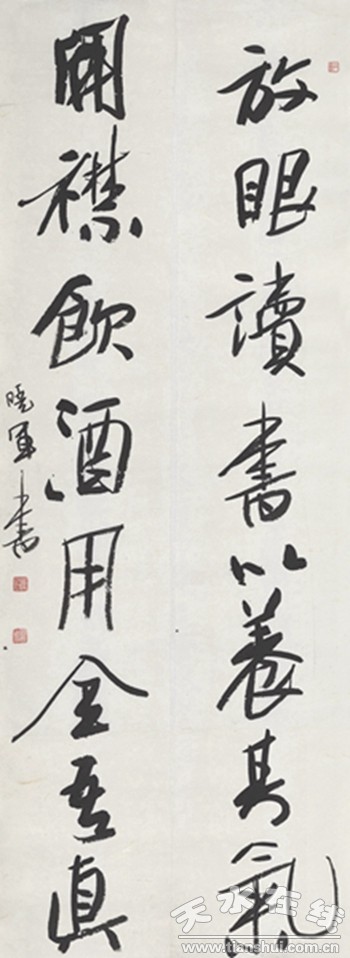 放眼讀書以養其氣
開襟飲酒用全吾真
曉軍書
天水在线
www.tianshui.com.cn